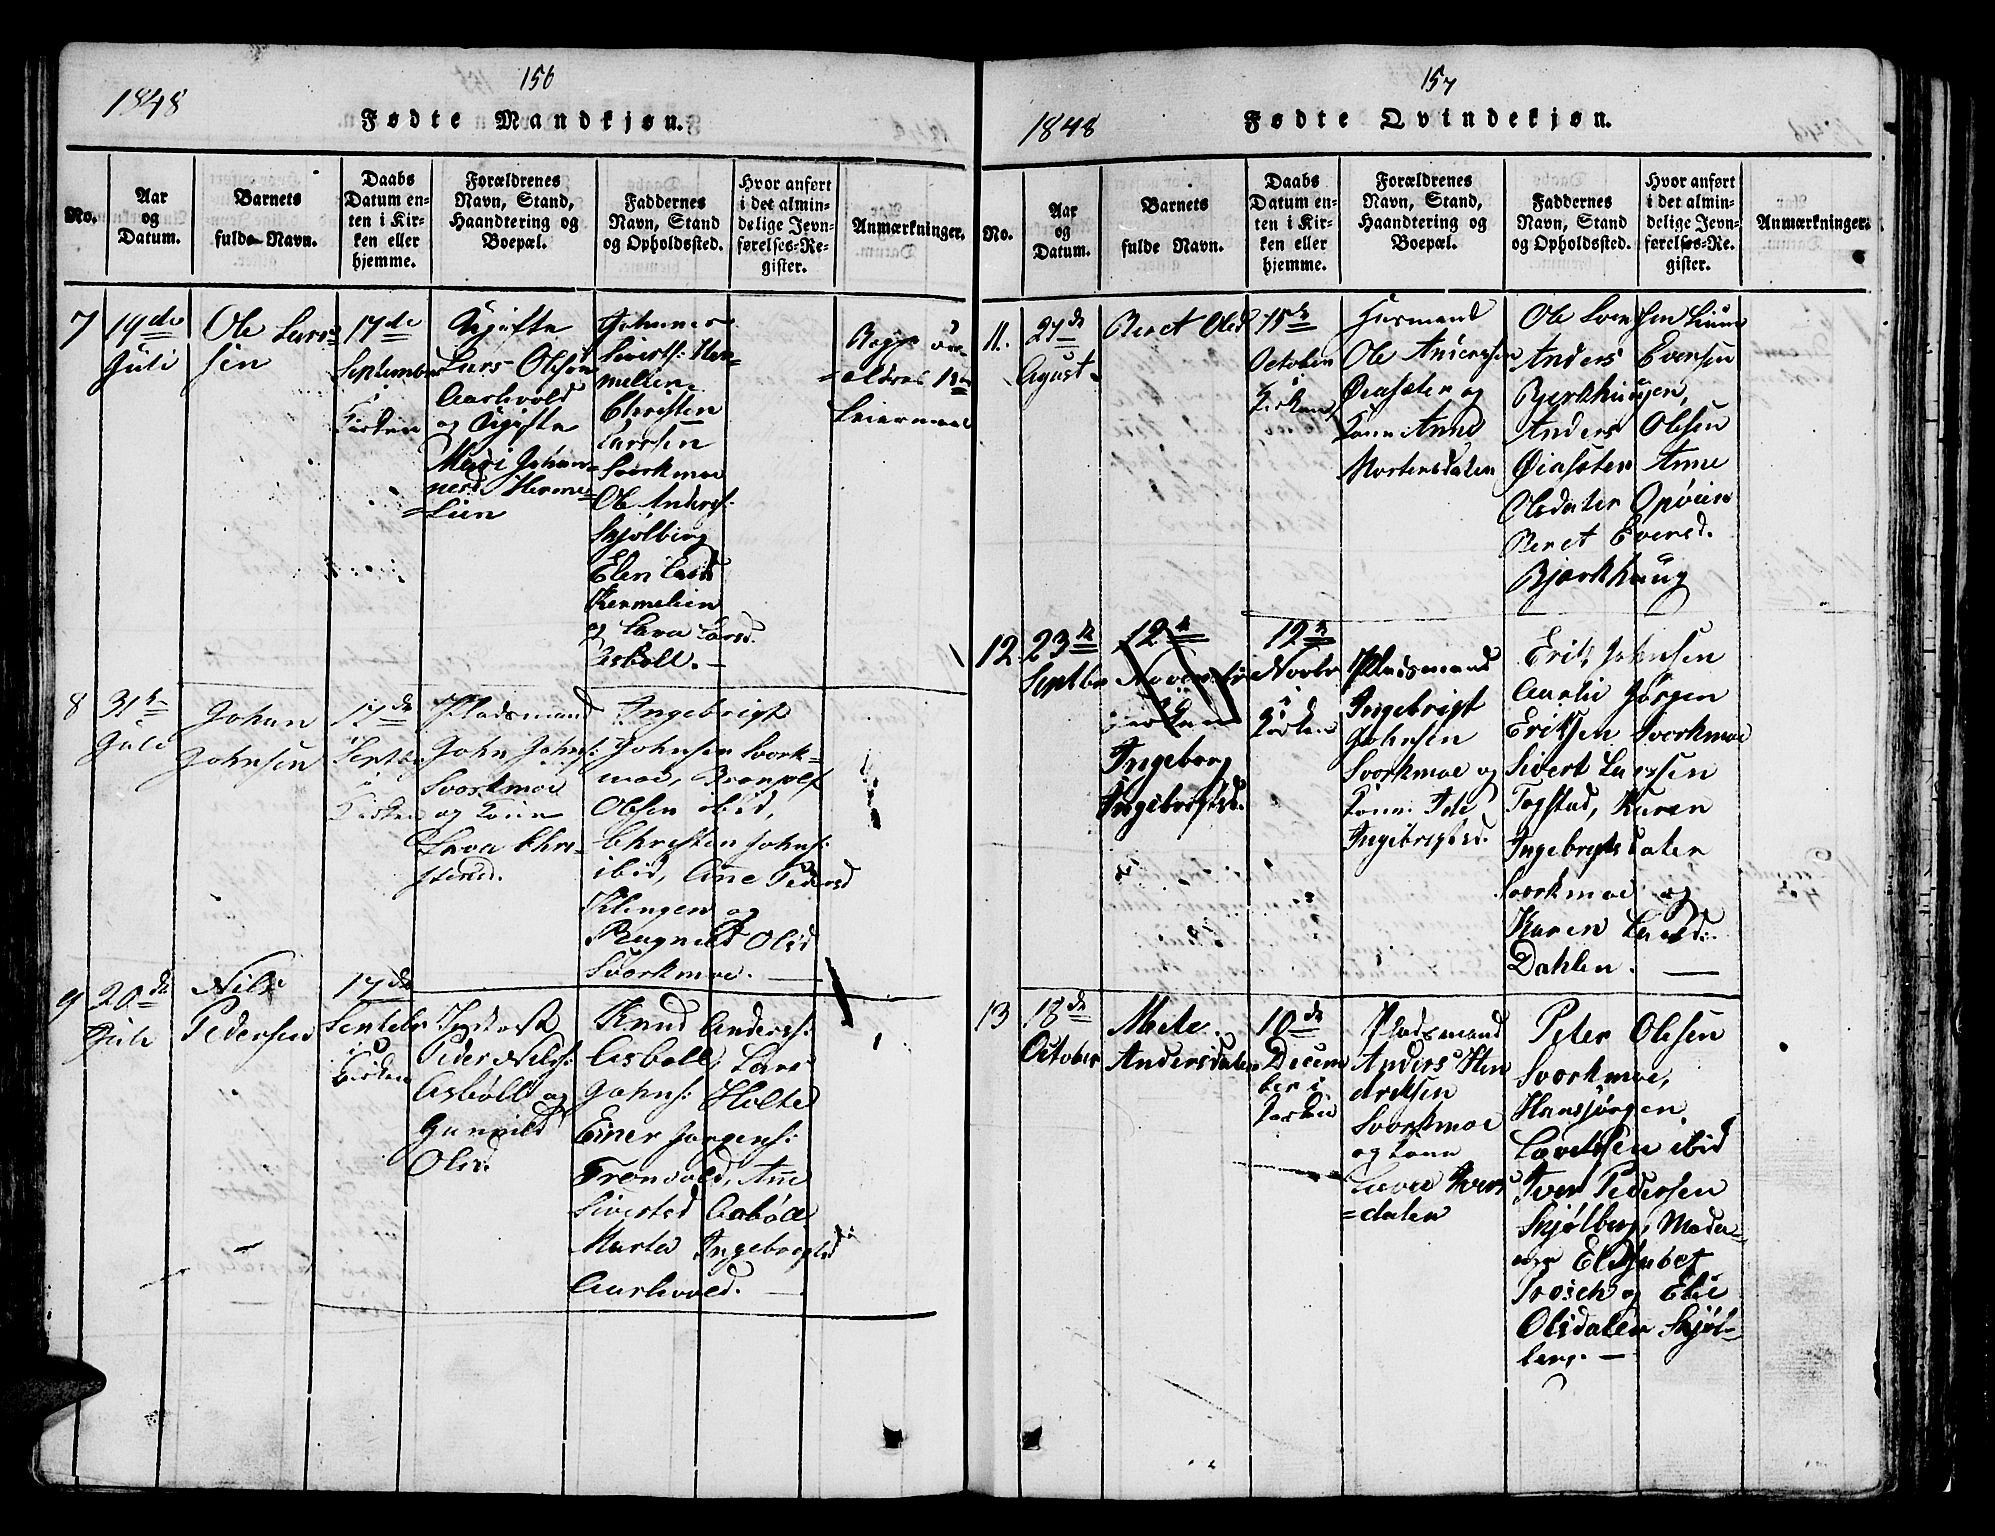 156
1848
Fødte Mandkjøn.
No.
Aar
og
Datum.
Barnets
fulde Navn.
Daabs
Datum en-
ten i Kir-
ken eller
hjemme.
Forældrenes
Navn, Stand,
Haandtering og
Boepæl.
Faddernes
Navn, Stand
og Opholdssted.
Hvor anført
i det almin-
delige Jevn-
førelses-Re-
gister.
Anmærkninger.
7
19de
Juli
Ole Lars-
sen
17de
September
i
Kirken
Ugifte
Lars Olsen
Aarhvold
og Ugifte
Mari Johan-
nesd. Herme-
=Lien
Johannes
Siverts: Her-
melien
Christen
Larsen
Svorkmoe
Ole Anders:
Skjølberg
Elen Larsd
Hermelien
og Lava Larsd.
Asböll. —
Begge For-
=ældres 1ste
Leiermaal
8
31te
Juli
Johan
Johnsen
17de
Septbr
i
Kirken
Pladsmand
John Johns:
Svorkmoe
og Kone
Lava Chri-
stensd.
Ingebrigt
Johnsen Svork-
moe,
Olsen ibid,
Christen Johns:
ibid, Ane Pedersd
Klingen og
Ragnild Olsd
Svorkmoe. —
9
20de
Juli
Nils
Pedersen
17de
Septebr
i
Kirken
Inderst
Peder Nils:
Asböll og
Gunnild
Olsd.
Knud Anders:
Asböll, Lars
Johns: Holte
Einer Jørgens:
Fremvold, Ane
Siversted Asböll
Marta Ingebregtsd
Aarhvold. —
157
1848
Fødte Qvindekjøn.
No.
Aar
og
Datum.
Barnets
fulde Navn.
Daabs
Datum en-
ten i Kir-
ken eller
hjemme.
Forældrenes
Navn, Stand,
Haandtering og
Boepæl.
Faddernes
Navn, Stand
og Opholdssted.
Hvor anført
i det almin-
delige Jevn-
førelses-Re-
gister.
Anmærkninger.
11.
27de
Agust
Beret Olsd
15de
October
i
Kirken
Husmand
Ole Andersen
Øiasæter og
Kone Anne
Mortensdater
Ole Svensen
Anders Evensen
Bjerkhaugen,
Anders Olesen
Øiasæter Anne
Olsdater Opøien
Beret Evensd.
Bjørkhaug
12
23de
Septbr
12te
November
i
Kirken
Ingeborg
Ingebrigtsd.
12te
Novbr
i
Kirken
Pladsmand
Ingebrigt
Johnsen
Svorkmoe og
Kone: Ide
Ingebrigtsd.
Erik Johnsen
Aarlie Jørgen
Eriksen Svorkmoe
Sivert Larssen
Togstad, Karen
Ingebregtsdater
Svorkmoe og
Karen Larsd:
Dahlen. —
13
18de
October
Mete
Andersdater
10de
Decem-
ber i
Kirken
Pladsmand
Anders Hen
driksen
Svorkmoe
og Kone
Lava Ivers
=dater
Peter Olesen
Svorkmoe,
Hansjørgen
Lavetssen ibid
Iver Pedersen
Skjølberg, Mada-
me Elisabet
Trosch og Elie
Olsdater Skjøl-
berg. —